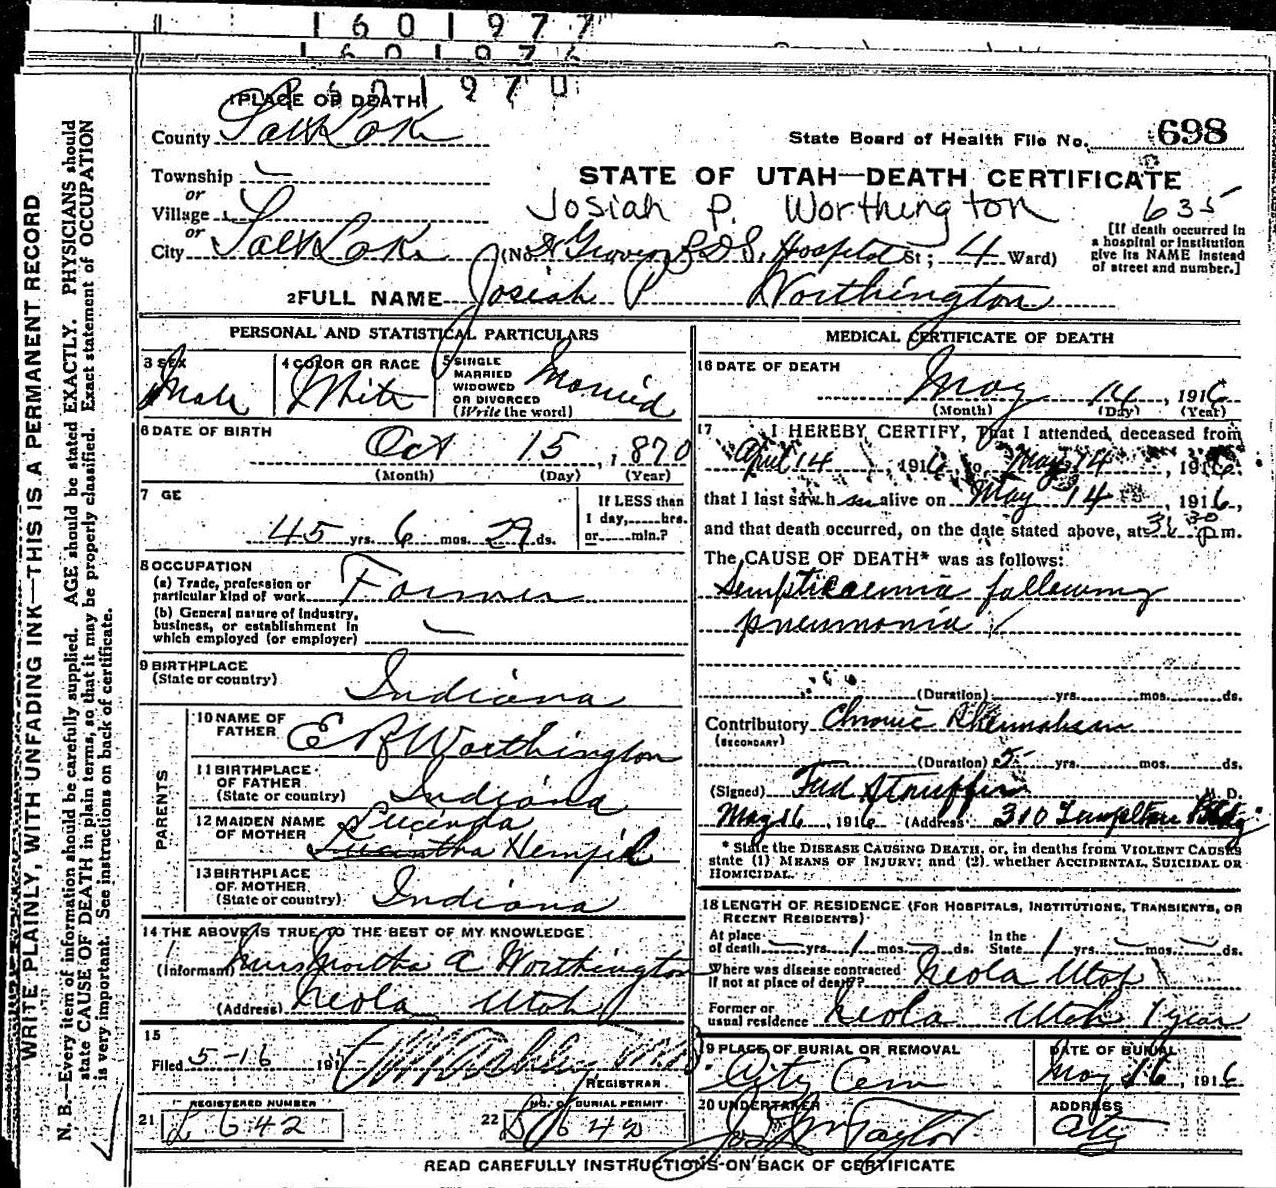 1601977
1601976
1601970
WRITE PLAINLY, WITH UNFADING INK—THIS IS A PERMANENT RECORD
N. B.—Every item of information should be carefully supplied. AGE should be stated EXACTLY. PHYSICIANS should
state CAUSE OF DEATH in plain terms, so that it may be properly classified. Exact statement of OCCUPATION
is very important. See instructions on back of certificate.
1 PLACE OF DEATH
County Salt Lake
State Board of Health File No. 698
Township —
STATE OF UTAH—DEATH CERTIFICATE
or
Village
Josiah P. Worthington 635
or
City Salt Lake (No. Groves L.D.S. Hospital St; 4 Ward)
[If death occurred in
a hospital or institution
give its NAME instead
of street and number.]
2 FULL NAME Josiah P Worthington
PERSONAL AND STATISTICAL PARTICULARS
3 SEX Male
4 COLOR OR RACE White
5 SINGLE
MARRIED
WIDOWED
OR DIVORCED
(Write the word)
Married
6 DATE OF BIRTH
Oct 15, 1870
(Month) (Day) (Year)
7 GE
45 yrs. 6 mos. 29 ds.
If LESS than
1 day,......hrs.
or......min.?
8 OCCUPATION
(a) Trade, profession or
particular kind of work Farmer
(b) General nature of industry,
business, or establishment in
which employed (or employer) —
9 BIRTHPLACE
(State or country) Indiana
PARENTS
10 NAME OF
FATHER E R Worthington
11 BIRTHPLACE
OF FATHER
(State or country) Indiana
12 MAIDEN NAME
OF MOTHER
Lucinda
Lucintha Hempil
13 BIRTHPLACE
OF MOTHER
(State or country) Indiana
14 THE ABOVE IS TRUE TO THE BEST OF MY KNOWLEDGE
(Informant) Mrs Martha A Worthington
(Address) Neola Utah
15
Filed 5-16 191
REGISTRAR
REGISTERED NUMBER
21 L 642
NO. OF BURIAL PERMIT
22
MEDICAL CERTIFICATE OF DEATH
16 DATE OF DEATH
May 14, 1916
(Month) (Day) (Year)
17 I HEREBY CERTIFY, That I attended deceased from
April 14, 1916, to May 14, 1916,
that I last saw h im alive on May 14, 1916,
and that death occurred, on the date stated above, at 3:30 p m.
The CAUSE OF DEATH* was as follows:
Sempticaemia following
pneumonia
(Duration) yrs. mos. ds.
Contributory Chronic Rheumatism
(SECONDARY)
(Duration) 5 yrs. mos. ds.
(Signed) Fred Stauffer M. D.
May 16, 1916 (Address 310 Templeton Bldg
* State the DISEASE CAUSING DEATH, or, in deaths from VIOLENT CAUSES
state (1) MEANS OF INJURY; and (2) whether ACCIDENTAL, SUICIDAL OR
HOMICIDAL.
18 LENGTH OF RESIDENCE (FOR HOSPITALS, INSTITUTIONS, TRANSIENTS, OR
RECENT RESIDENTS)
At place
of death — yrs. 1 mos. — ds. In the
State 1 yrs. — mos. — ds.
Where was disease contracted
if not at place of death? Neola Utah
Former or
usual residence Neola Utah 1 year
19 PLACE OF BURIAL OR REMOVAL
City Cem
DATE OF BURIAL
May 16, 1916
20 UNDERTAKER
Jos Wm Taylor
ADDRESS
City
READ CAREFULLY INSTRUCTIONS ON BACK OF CERTIFICATE